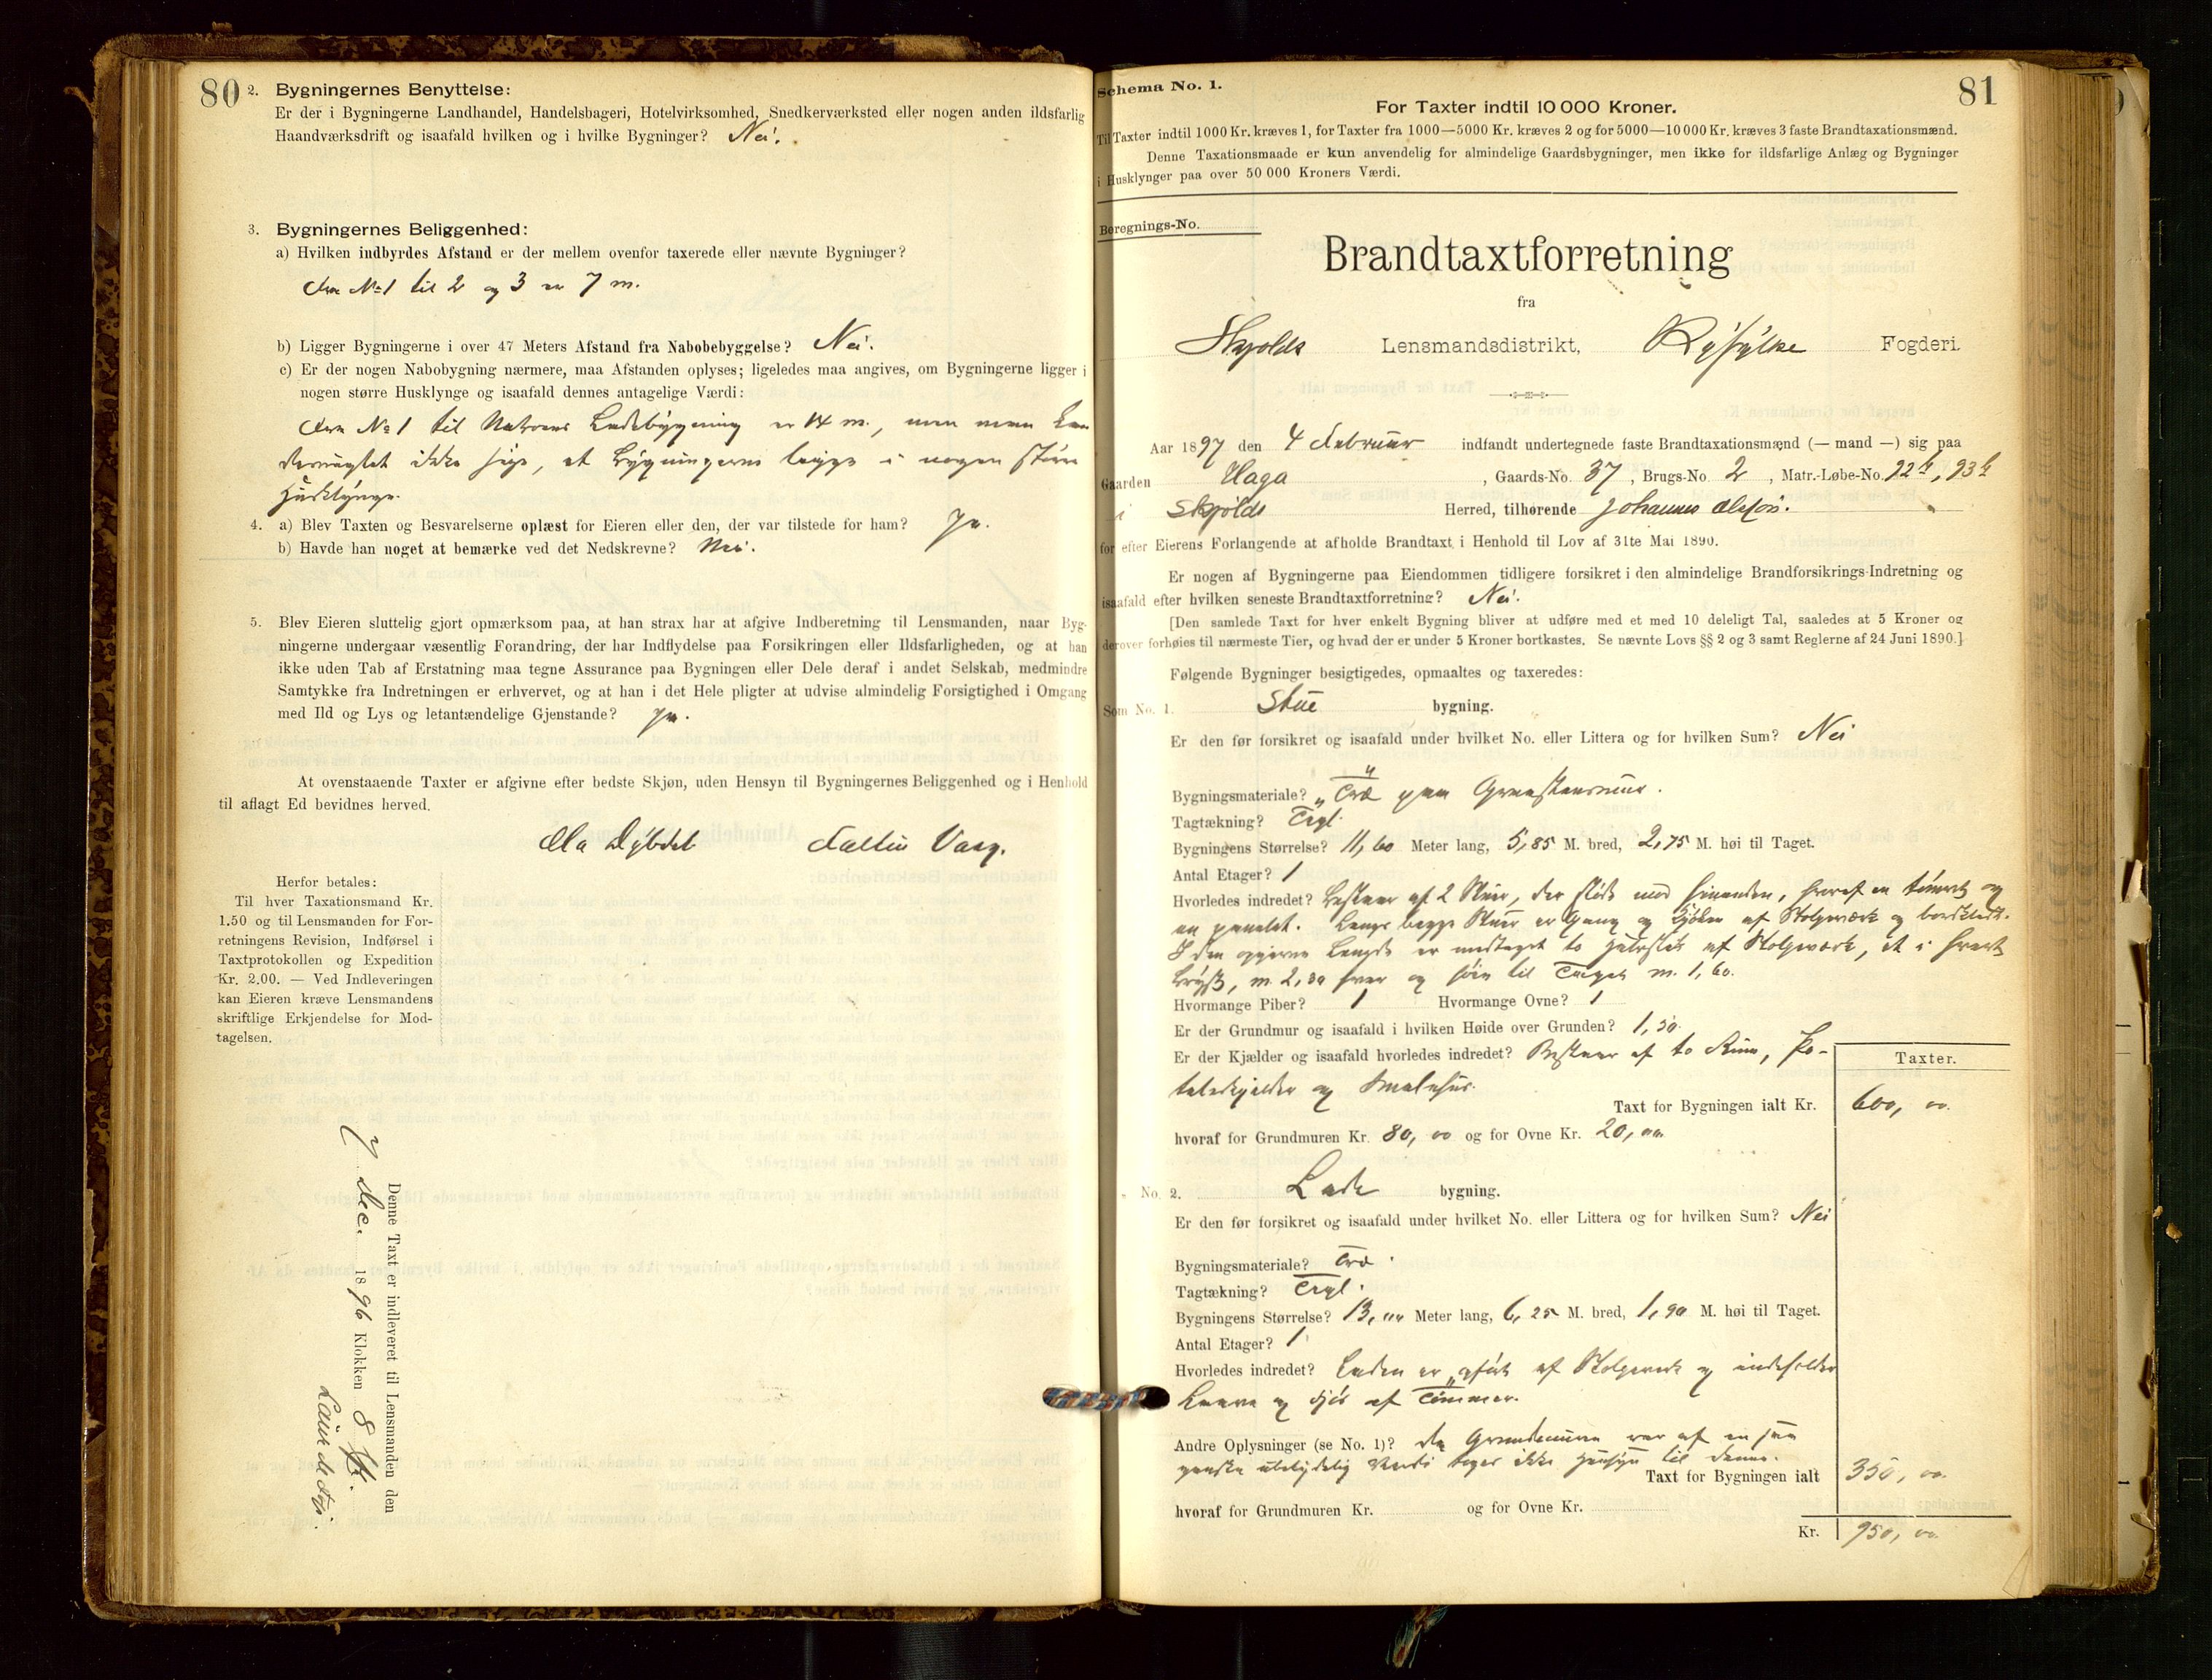 80
2. Bygningernes Benyttelse:
Er der i Bygningerne Landhandel, Handelsbageri, Hotelvirksomhed, Snedkerværksted eller nogen anden ildsfarlig
Haandværksdrift og isaafald hvilken og i hvilke Bygninger? Nei.
3. Bygningernes Beliggenhed:
a) Hvilken indbyrdes Afstand er der mellem ovenfor taxerede eller nævnte Bygninger?
Fra No 1 til 2 og 3 er 7 m.
b) Ligger Bygningerne i over 47 Meters Afstand fra Nabobebyggelse? Nei.
c) Er der nogen Nabobygning nærmere, maa Afstanden oplyses; ligeledes maa angives, om Bygningerne ligger i
nogen større Husklynge og isaafald dennes antagelige Værdi:
Fra No 1 til Naboens Ladebygning er 14 m., men man kan
desuagtet ikke sige, at Bygningerne ligge i nogen større
Husklynge.
4. a) Blev Taxten og Besvarelserne oplæst for Eieren eller den, der var tilstede for ham? Ja.
b) Havde han noget at bemærke ved det Nedskrevne? Nei.
5. Blev Eieren sluttelig gjort opmærksom paa, at han strax har at afgive Indberetning til Lensmanden, naar Byg-
ningerne undergaar væsentlig Forandring, der har Indflydelse paa Forsikringen eller Ildsfarligheden, og at han
ikke uden Tab af Erstatning maa tegne Assurance paa Bygningen eller Dele deraf i andet Selskab, medmindre
Samtykke fra Indretningen er erhvervet, og at han i det Hele pligter at udvise almindelig Forsigtighed i Omgang
med Ild og Lys og letantændelige Gjenstande? Ja.
At ovenstaaende Taxter er afgivne efter bedste Skjøn, uden Hensyn til Bygningernes Beliggenhed og i Henhold
til aflagt Ed bevidnes herved.
Ola
Herfor betales:
Til hver Taxationsmand Kr.
1.50 og til Lensmanden for For-
retningens Revision, Indførsel i
Taxtprotokollen og Expedition
Kr. 2.00. — Ved Indleveringen
kan Eieren kræve Lensmandens
skriftlige Erkjendelse for Mod-
tagelsen.
Denne Taxt er indleveret til Lensmanden den
7 Dec. 1896 Klokken 8
81
Schema No. 1.
For Taxter indtil 10 000 Kroner.
Til Taxter indtil 1000 Kr. kræves 1, for Taxter fra 1000—5000 Kr. kræves 2 og for 5000—10 000 Kr. kræves 3 faste Brandtaxationsmænd.
Denne Taxationsmaade er kun anvendelig for almindelige Gaardsbygninger, men ikke for ildsfarlige Anlæg og Bygninger
i Husklynger paa over 50 000 Kroners Værdi.
Beregnings-No.
Brandtaxtforretning
fra
Skjolds Lensmandsdistrikt, Ryfylke Fogderi.
Aar 1897 den 4 Februar indfandt undertegnede faste Brandtaxationsmænd (— mand —) sig paa
Gaarden Haga, Gaards-No. 37, Brugs-No. 2, Matr.-Løbe-No. 92 b, 93 b
i Skjolds Herred, tilhørende Johannes Olsen.
for efter Eierens Forlangende at afholde Brandtaxt i Henhold til Lov af 31te Mai 1890.
Er nogen af Bygningerne paa Eiendommen tidligere forsikret i den almindelige Brandforsikrings-Indretning og
isaafald efter hvilken seneste Brandtaxtforretning? Nei.
[Den samlede Taxt for hver enkelt Bygning bliver at udføre med et med 10 deleligt Tal, saaledes at 5 Kroner og
derover forhøies til nærmeste Tier, og hvad der er under 5 Kroner bortkastes. Se nævnte Lovs §§ 2 og 3 samt Reglerne af 24 Juni 1890.]
Følgende Bygninger besigtigedes, opmaaltes og taxeredes:
Som No. 1. Stue bygning.
Er den før forsikret og isaafald under hvilket No. eller Littera og for hvilken Sum? Nei
Bygningsmateriale? Træ paa Graastensmur.
Tagtækning? Tegl.
Bygningens Størrelse? 11,60 Meter lang, 5,85 M. bred, 2,75 M. høi til Taget.
Antal Etager? 1
Hvorledes indredet? Bestaar af 2 Stuer, der støde mod hinanden, hvoraf en tømret og
en panelet. Langs begge Stuer er Gang og Kjøken af Stolpeværk og bordklædt.
I den opgivne Længde er medtaget to Halvtag af Stolpeværk, et i hvert
m. 2,30 hver og høie til Taget m. 1,60.
Hvormange Piber? 1 Hvormange Ovne? 1
Er der Grundmur og isaafald i hvilken Høide over Grunden? 1,50.
Er der Kjælder og isaafald hvorledes indredet? Bestaar af to Rum, Po-
tetekjelder og Smalehus.
Taxter.
Taxt for Bygningen ialt Kr. 600, 00.
hvoraf for Grundmuren Kr. 80, 00 og for Ovne Kr. 20, 00.
" No. 2. Lade bygning.
Er den før forsikret og isaafald under hvilket No. eller Littera og for hvilken Sum? Nei
Bygningsmateriale? Træ.
Tagtækning? Tegl.
Bygningens Størrelse? 13,00 Meter lang, 6,25 M. bred, 1,90 M. høi til Taget.
Antal Etager? 1
Hvorledes indredet? Laden er opført af Stolpeværk og indeholder
Laave og Fjøs af Tømmer.
Andre Oplysninger (se No. 1)? Da Grundmuren var af en saa
ganske ubetydelig Værdi toges ikke Hensyn til denne.
Taxt for Bygningen ialt 350, 00.
hvoraf for Grundmuren Kr. og for Ovne Kr.
Kr. 950, 00.